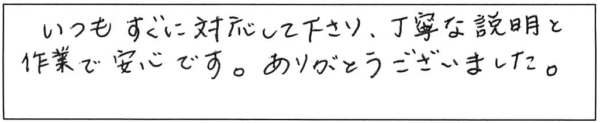 いつもすぐに対応して下さり、丁寧な説明と
作業で安心です。ありがとうございました。